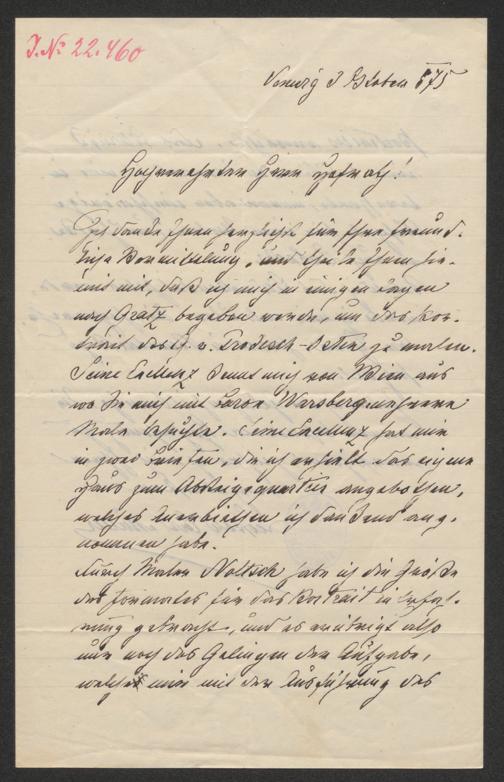 J. No 22.460
Venedig 3 October 875
Hochverehrter Herr Hofrath!
Ich danke Ihnen herzlichst für Ihre freund-
liche Vermittelung, und theile Ihnen hie-
mit mit, daß ich mich in einigen Tagen
nach Gratz begeben werde, um das Por-
trait des H. v. Prokesch-Osten zu malen.
Seine Excellenz kennt mich von Wien aus
wo Sie mich mit Baron Warsberg mehrere
Male besuchte. Seine Excellenz hat mir
in zwei Briefen, die ich erhielt das eigene
Haus zum Absteigequartier angebothen,
welches Anerbiethen ich dankend ang-
nommen habe.
Durch Maler Noltsch habe ich die Größe
des Formates für das Portrait in Erfah-
rung gebracht, und es erübrigt also
nur noch das Gelingen der Aufgabe,
welche mir mit der Ausführung des